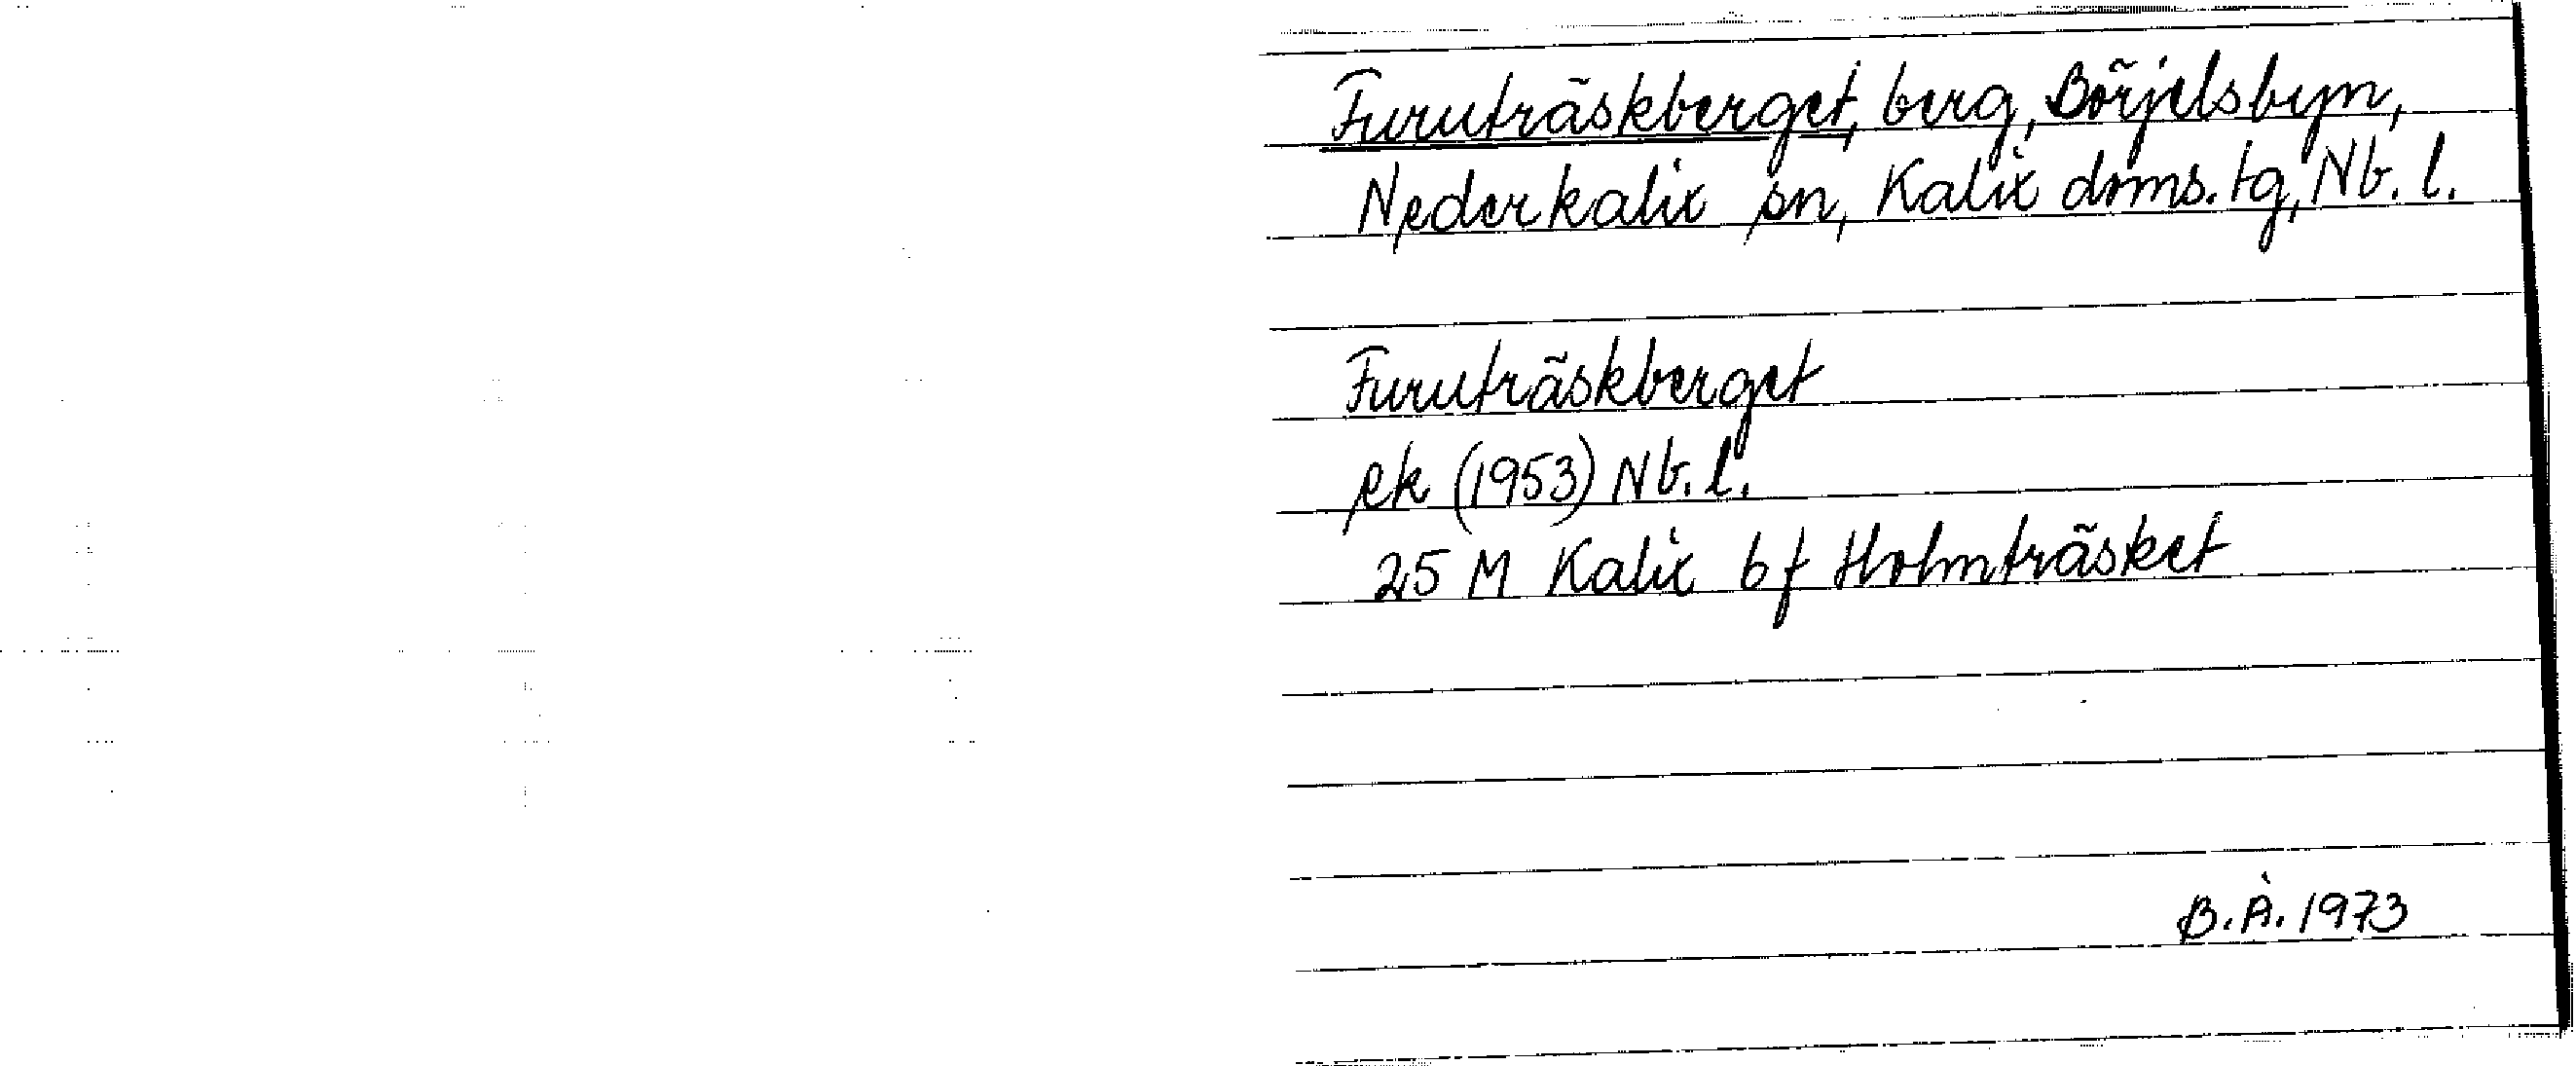 Furuträskberget, berg, Börjelsbyn,
Nederkalix sn, Kalix doms. tg, Nb. l.
Furuträskberget
ek (1953) Nb. l.
25 M Kalix bf Holmträsket
B.Å. 1973